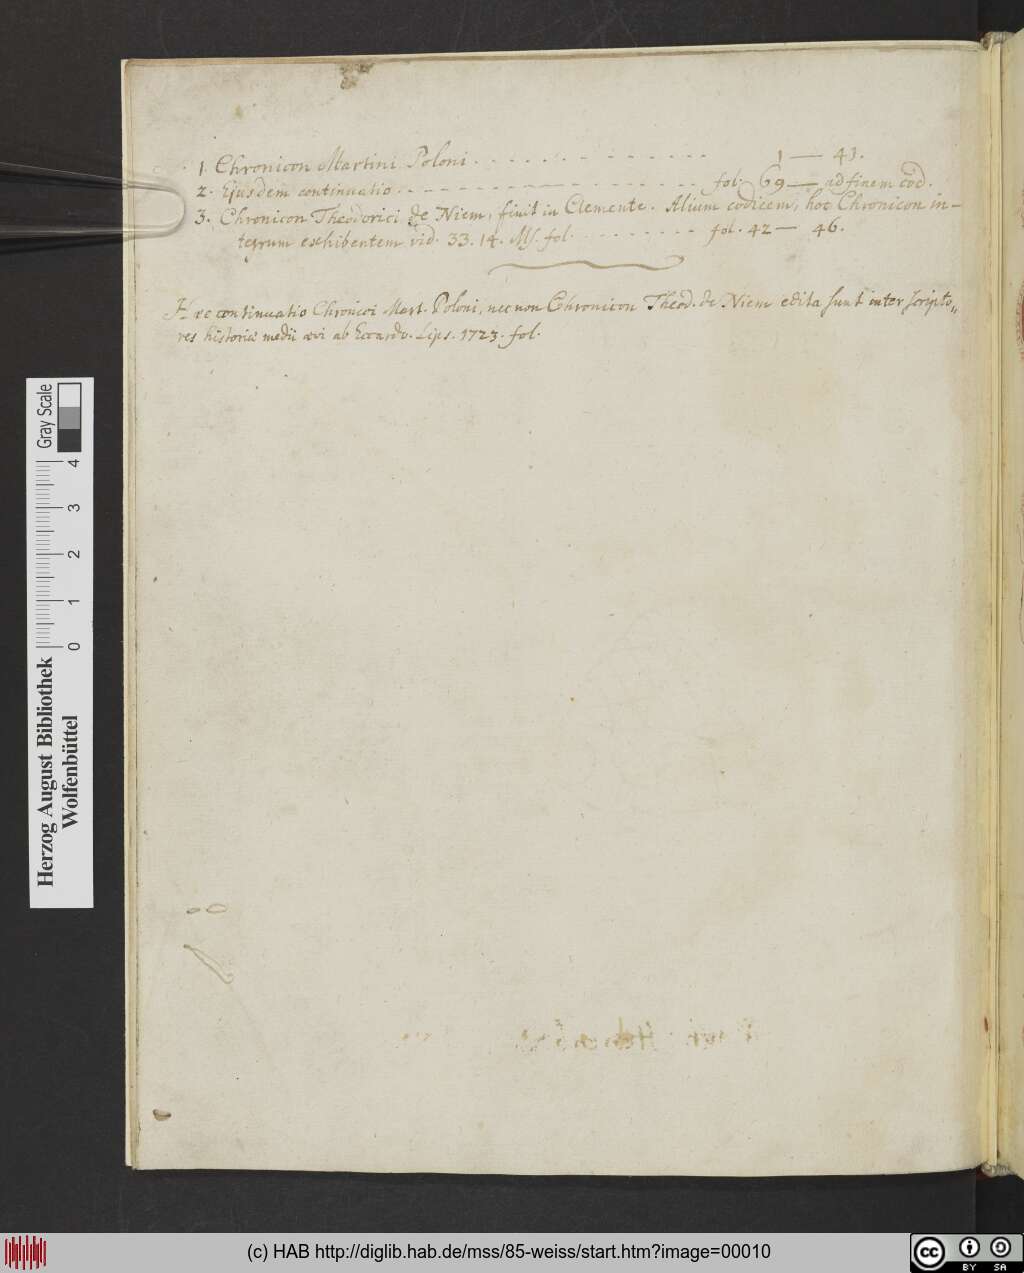 1. Chronicon Martini Poloni . . . . . . . . . . . . . 1 — 41.
2. Ejusdem continuatio . . . . . . . . . . . . . . . fol. 69 — ad finem cod.
3. Chronicon Theodorici de Niem, finit in Clemente. Alium codicem, hoc Chronicon in-
tegrum exhibentem vid. 33. 14. Ms. fol. . . . . . . . . . fol. 42 — 46.
Hæc continuatio Chronici Mart. Poloni, nec non Chronicon Theod. de Niem edita sunt inter scripto„
res historiæ medii ævi ab Eccardo. Lips. 1723. fol.
Gray Scale
0 1 2 3 4
Herzog August Bibliothek
Wolfenbüttel
(c) HAB http://diglib.hab.de/mss/85-weiss/start.htm?image=00010
cc BY SA